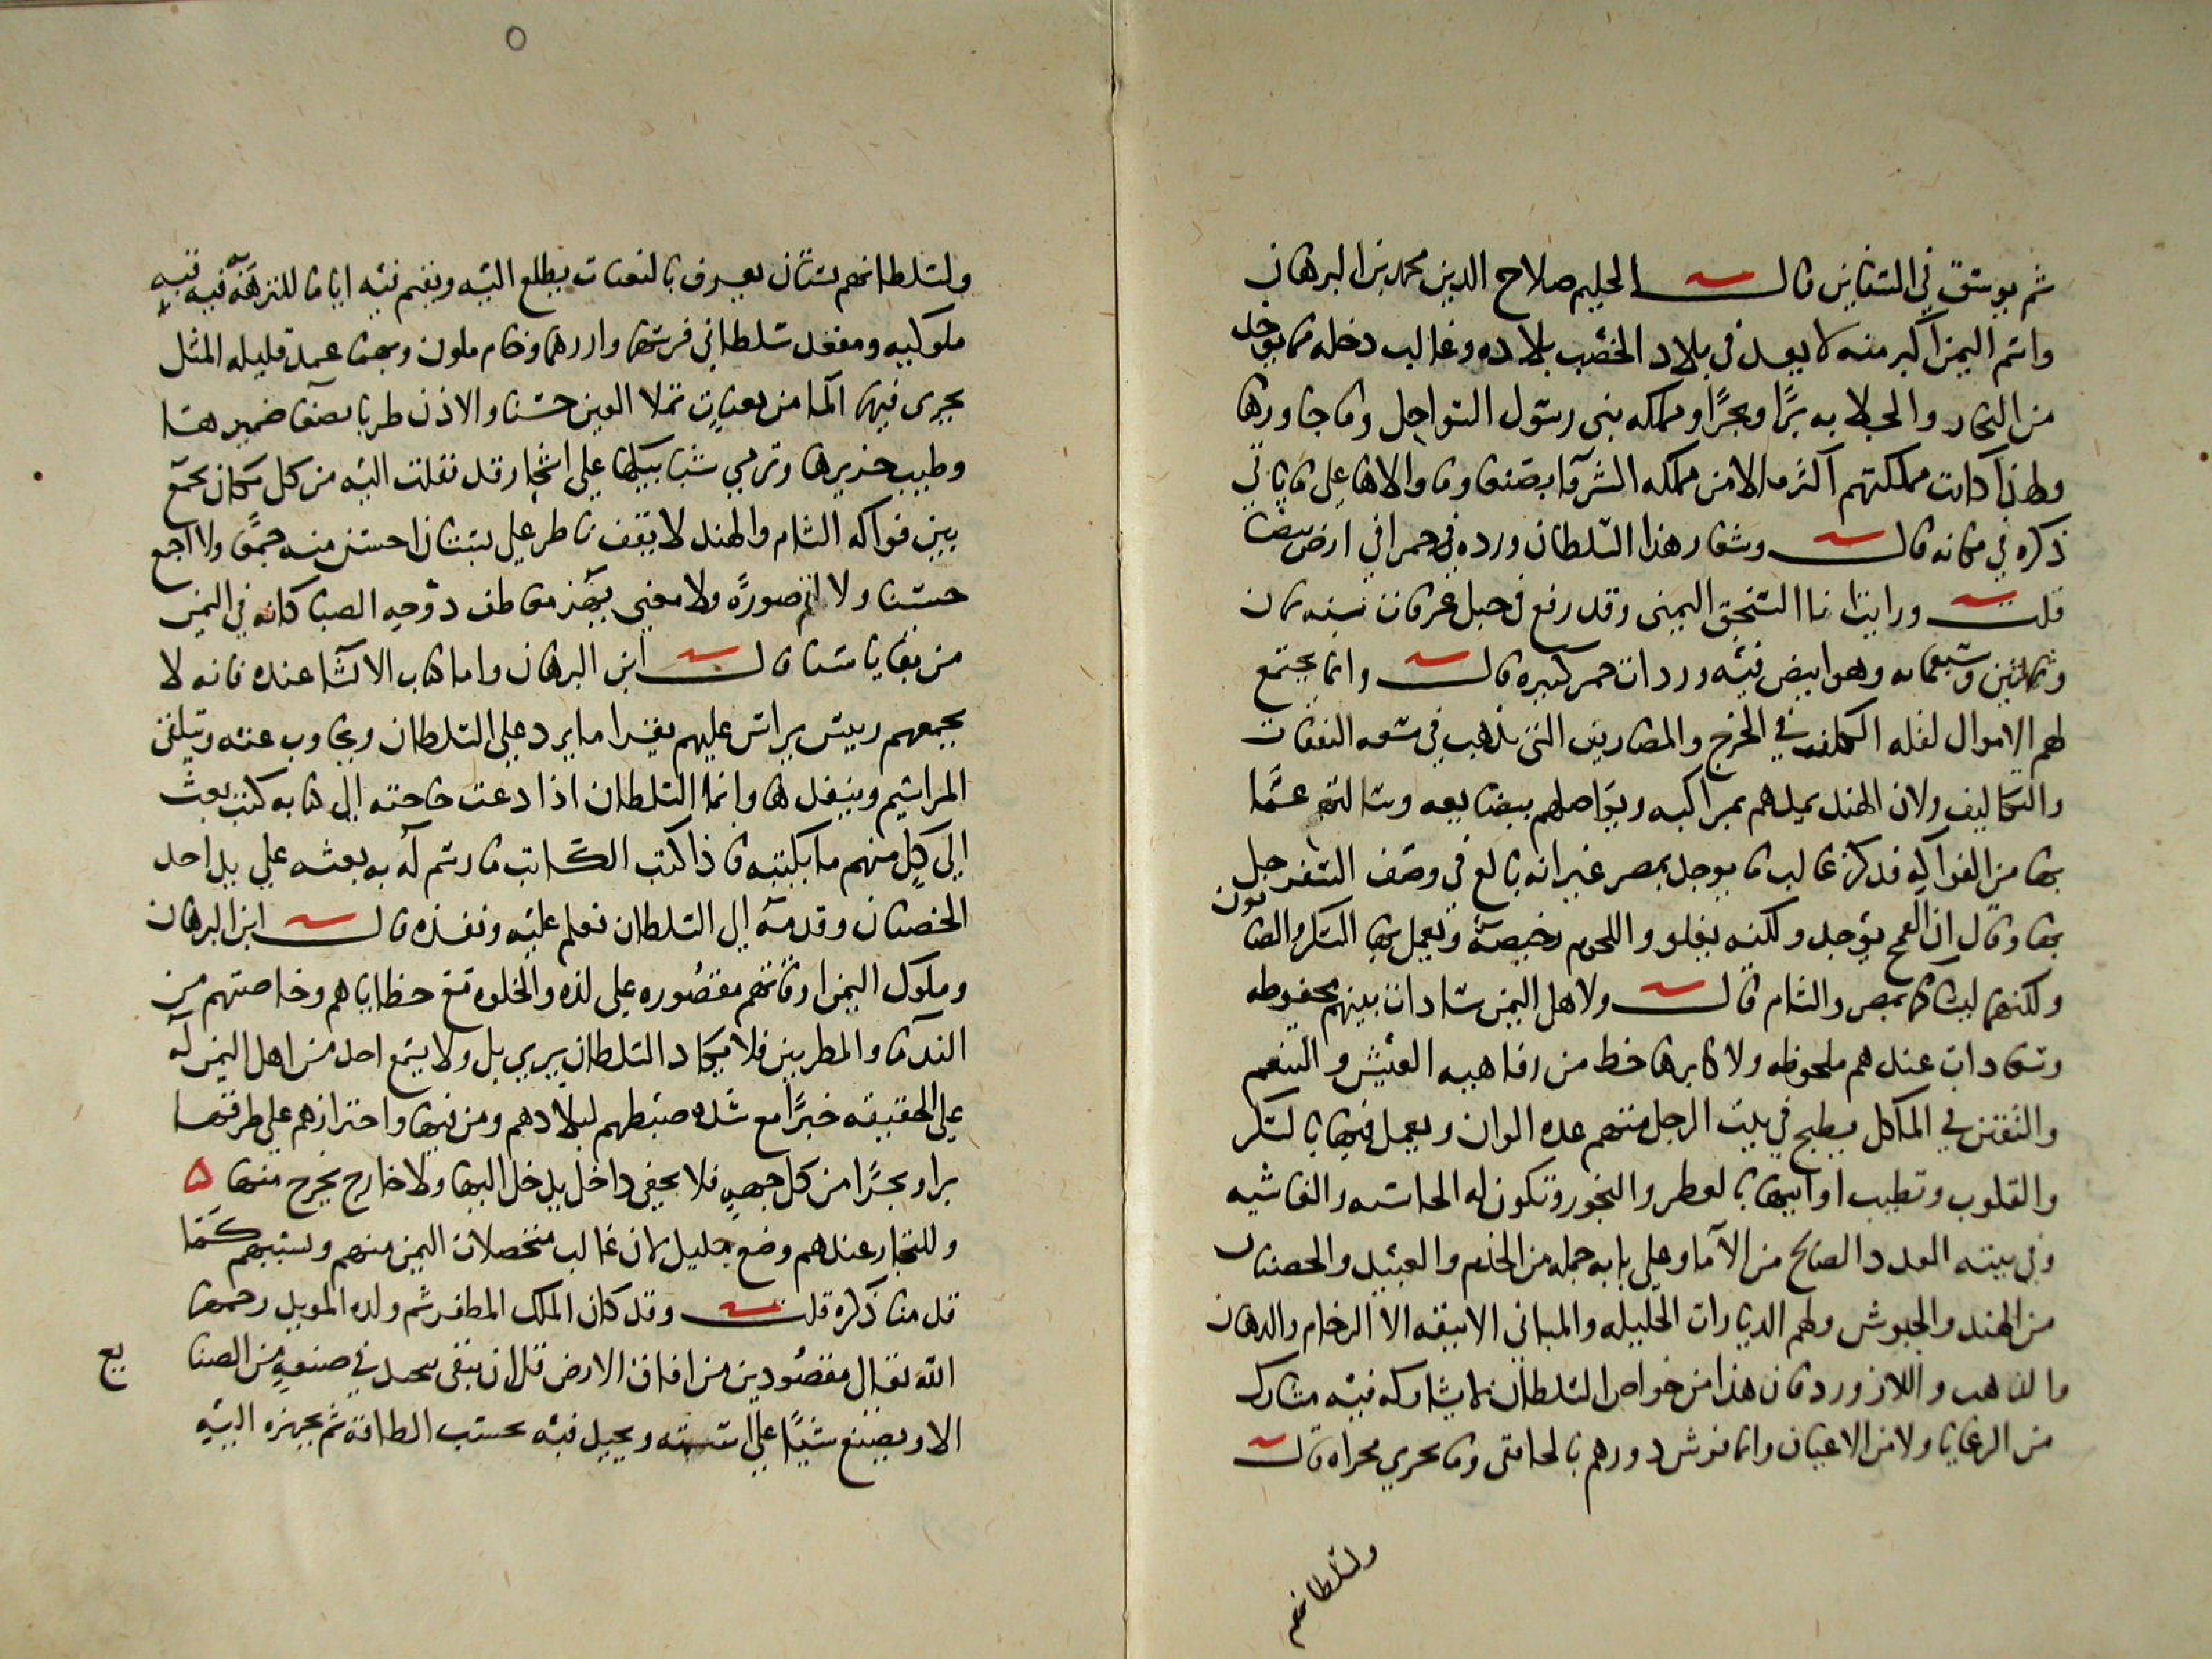 ثم يوسق في السفاين قالـــــت الحليم صلاح الدين محمد بن البرهان
واسم اليمن اكبر منه لا يعد في بلاد الخصب بلاده وغالب دخله مما يوجد
من التجار والجلابه برًا وبحرًا ومملكه بني رسول السواحل وما جاورها
ولهذا كانت مملكتهم اكثر مالا من مملكه الشرفا بصنعا وما والاها على ما ياتي
ذكره في مكانه قالـــــت وشعار هذا السلطان ورده في حمرا في ارض بيضا
قلـــــت ورايت انا السنجق اليمني وقد رفع في جبل عرفات سنه ثمان
وثلاثين وسبعمايه وهو ابيض فيه وردات حمر كبيره قالـــــت وانما يجتمع
لهم الاموال لقله الكلف في الخرج والمصاريف التي تذهب في سعه النفقات
والتكاليف ولان الهند يمدهم بمراكبه ويواصلهم ببضايعه وسالته عما
بها من الفواكه فذكر غالب ما يوجد بمصر غير انه بالغ في وصف السفرجل
بها وقال ان القمح يوجد ولكنه يغلو واللحوم رخيصة ويعمل بها السكر والصابون
ولكنهما ليسا كما بمصر والشام قالـــــت ولاهل اليمن سادات بينهم محفوظه
وسعادات عندهم ملحوظه ولاكابرها حظ من رفاهيه العيش والتنعم
والتفنن في الماكل يطبخ في بيت الرجل منهم عده الوان ويعمل فيها بالسكر
والقلوب وتطيب اوانيها بالعطر والبخور وتكون له الحاشيه والغاشيه
وفي بيته العدد الصالح من الاما وعلى بابه جمله من الخدم والعبيد والخصيان
من الهند والحبوش ولهم الديارات الجليله والمباني الانيقه الا الرخام والدهان
بالذهب واللازورد فان هذا من خواص السلطان لا يشاركه فيه مشارك
من الرعايا ولا من الاعيان وانما فرش دورهم بالخافقي وما يجري مجراه قالـــــت
ولسلطانهم
ولسلطانهم بستان يعرف بالنعبات يطلع اليه ويقيم فيه اياما للنزهه فيه قبه
ملوكيه ومقعد سلطاني فرشها وازرها رخام ملون وبها عمد قليله المثل
يجري فيها الما من نعبات تملا العين حسنا والاذن طربا بصفا ضميرها
وطيب خريرها وترمي شبابيكها على اشجار قد نقلت اليه من كل مكان تجمع
بين فواكه الشام والهند لا يقف ناظر على بستان احسن منه جمعًا ولا اجمع
حسنا ولا اتم صورةً ولا معنى يهز معاطف دوحه الصبا كانه في اليمن
من بقايا سبا قالـــــت ابن البرهان واما كتاب الانشا عنده فانه لا
يجمعهم رييس يراس عليهم يقرا ما يرد على السلطان ويجاوب عنه ويتلقى
المراسيم وينفذها وانما السلطان اذا دعت حاجته الى كتابه كتب بعث
الى كل منهم ما يكتبه فاذا كتب الكاتب ما رسم له به بعثه على يد احد
الخصيان وقدمه الى السلطان فعلم عليه ونفذه قالـــــت ابن البرهان
وملوك اليمن اوقاتهم مقصوره على لذه والخلوه مع حظاياهم وخاصتهم من
الندما والمطربين فلا يكاد السلطان يرى بل ولا يسمع احد من اهل اليمن له
على الحقيقه خبرًا مع شده ضبطهم لبلادهم ومن فيها واحترازهم على طرقها
برا وبحرًا من كل جهه فلا يخفى داخل يدخل اليها ولا خارج يخرج منها ه
وللتجار عندهم وضع جليل لان غالب متحصلات اليمن منهم وبسببهم كما
قد منا ذكره قلـــــت وقد كان الملك المظفر ثم ولده المويد رحمهما
الله تعالى مقصودين من افاق الارض قل ان يبقى مجيد في صنعه من الصنايع
الا ويصنع شيًا على اسمه ويجيد فيه بحسب الطاقة ثم يجهزه اليه